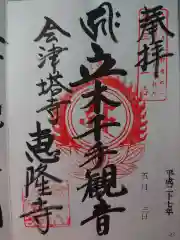 奉拝
平成二十七年
五月三日
立木千手観音
会津塔寺
恵隆寺